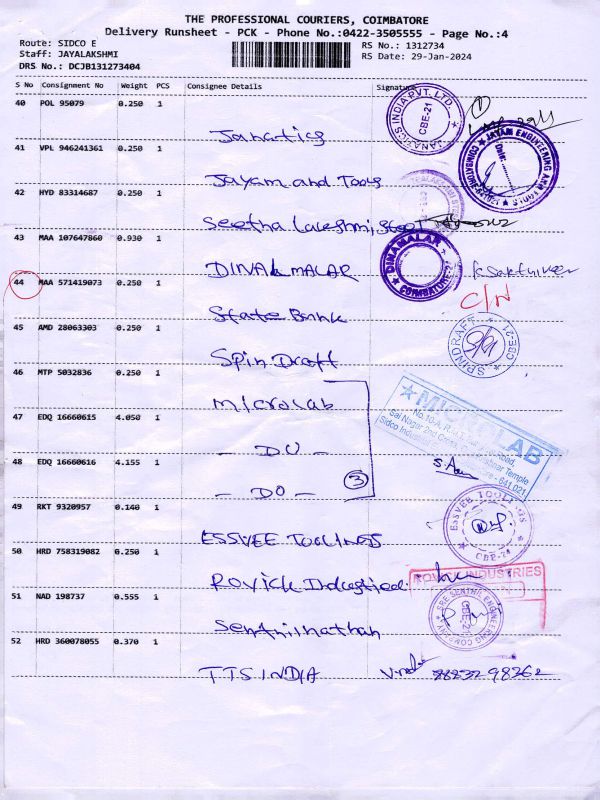 THE PROFESSIONAL COURIERS, COIMBATORE
Delivery Runsheet - PCK - Phone No.:0422-3505555 - Page No.:4
Route: SIDCO E
Staff: JAYALAKSHMI
DRS No.: DCJB131273404
RS No.: 1312734
RS Date: 29-Jan-2024
S No Consignment No Weight PCS Consignee Details Signature
40 POL 95079 0.250 1
Janatics
JANATICS INDIA PVT. LTD.
CBE-21
1
41 VPL 946241361 0.250 1
Jayam and Tools
JAYAM ENGINEERING AND TOOLS
42 HYD 83314687 0.250 1
Seetha Lakshmi Steel
43 MAA 107647860 0.930 1
DINAMALAR
DINAMALAR
COIMBATORE
44 MAA 571419073 0.250 1
State Bank
C/N
45 AMD 28063303 0.250 1
Spin Draft
SPINDRAFT CBE-21
46 MTP 5032836 0.250 1
Microlab
MICROLAB
No.10-A,
Sai Nagar 2nd Cross,
Temple
Sidco Indus
641 021
47 EDQ 16660615 4.050 1
- DO -
48 EDQ 16660616 4.155 1
- DO -
3
49 RKT 9320957 0.140 1
ESSVEE TOOLINGS
ESSVEE TOOLINGS
CBE-24
50 HRD 758319082 0.250 1
Rovick Industries
ROVICK INDUSTRIES
51 NAD 198737 0.555 1
Senthilnathan
SREE SENTHIL ENGINEERING COMPANY
CBE-21
52 HRD 360078055 0.370 1
TTS INDIA